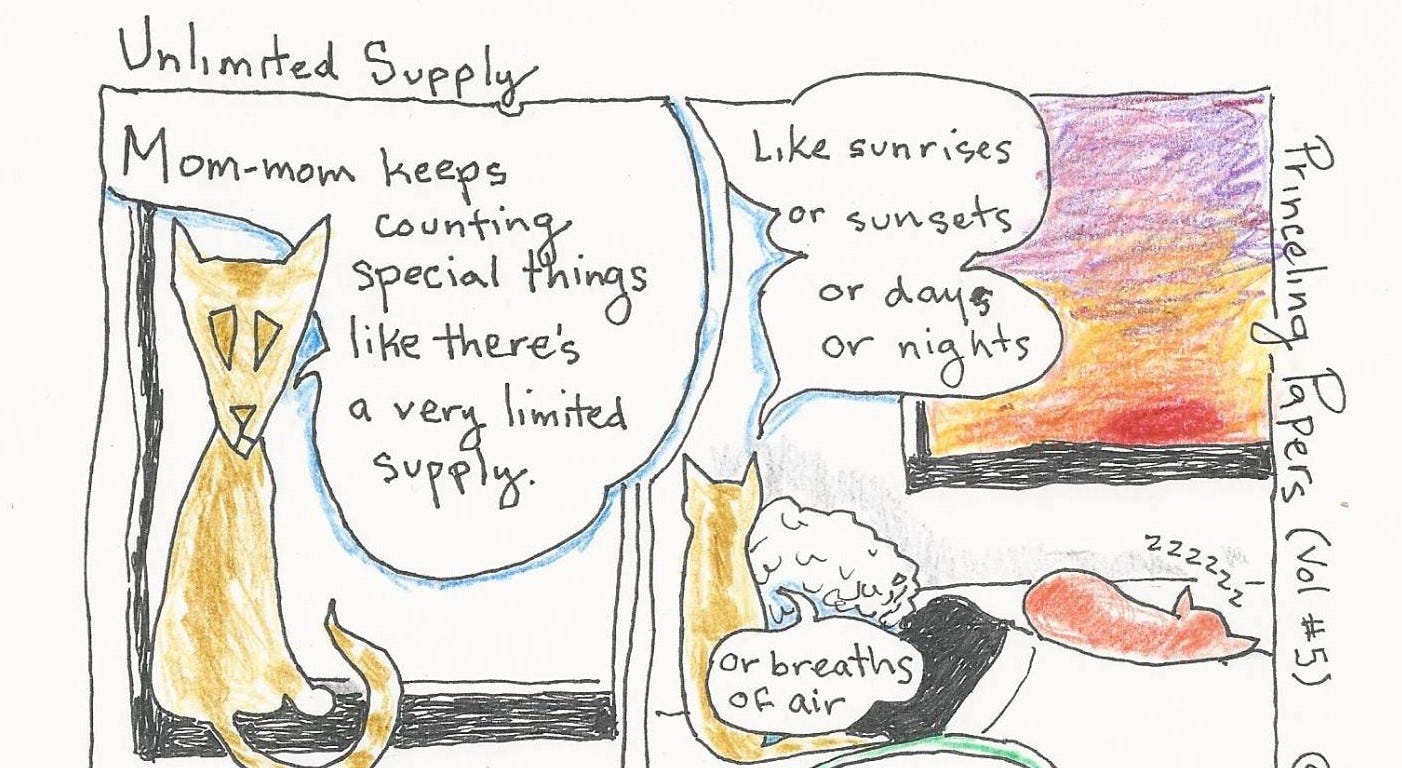 Unlimited Supply
Mom-mom keeps
counting
special things
like there's
a very limited
supply.
Like sunrises
or sunsets
or days
or nights
zzzzzzz
or breaths
of air
Princeling Papers (Vol #5)